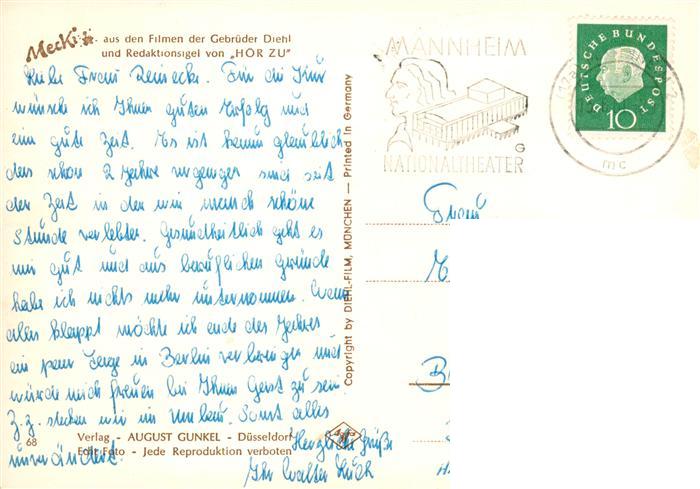 Mecki
aus den Filmen der Gebrüder Diehl
und Redaktionsigel von „HÖR ZU"
Liebe Frau Reinecke. Für die Kur
wünsche ich Ihnen guten Erfolg und
eine gute Zeit. Es ist kaum glaublich
das schon 2 Jahre vergangen sind seit
der Zeit in der wir manch schöne
Stunde verlebten. Gesundheitlich geht es
mir gut und aus beruflichen Gründe
habe ich nichts mehr unternommen. Wenn
alles klappt möchte ich ende des Jahres
ein paar Tage in Berlin verbringen und
würde mich freuen bei Ihnen Gast zu sein
Z.Z. stecken wir im Umbau. Sonst alles
unverändert.
Herzliche Grüße
Ihr Walter
68
Verlag - AUGUST GUNKEL - Düsseldorf
Edit Foto - Jede Reproduktion verboten
Copyright by DIEHL-FILM, MÜNCHEN — Printed in Germany
MANNHEIM
G
NATIONALTHEATER
DEUTSCHE BUNDESPOST
10
mc
Frau